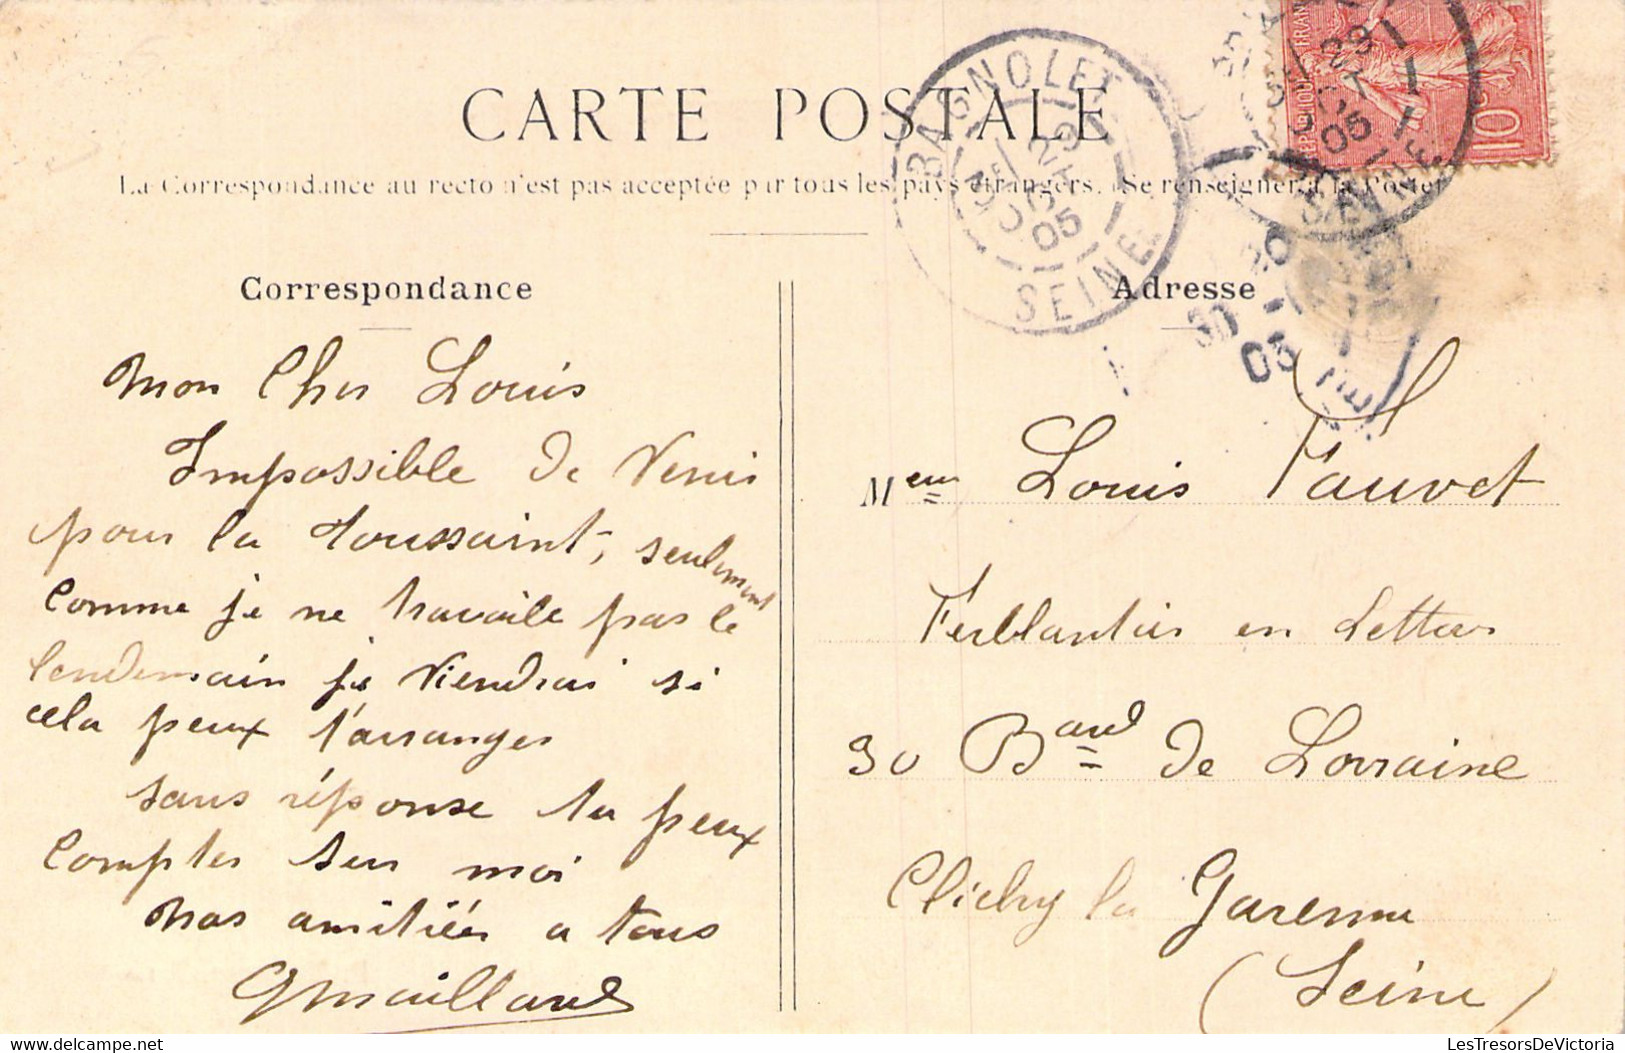 CARTE POSTALE
La Correspondance au recto n'est pas acceptée par tous les pays étrangers. (Se renseigner à la Poste)
Correspondance
Mon Cher Louis
Impossible de Venir
pour la Toussaint, seulement
comme je ne travaile pas le
lendemain je viendrai si
cela peux t'arranger
sans réponse tu peux
compter sur moi
Nos amitiées a tous
GMaillard
Adresse
Meur Louis Fauvet
Ferblantier en Lettres
30 Bard de Lorraine
Clichy la Garenne
(Seine)
BAGNOLET
29
OCT
05
SEINE
REPUBLIQUE FRAN
10c
29
05
SEINE
30
05
LesTresorsDeVictoria
LesTresorsDeVictoria.com